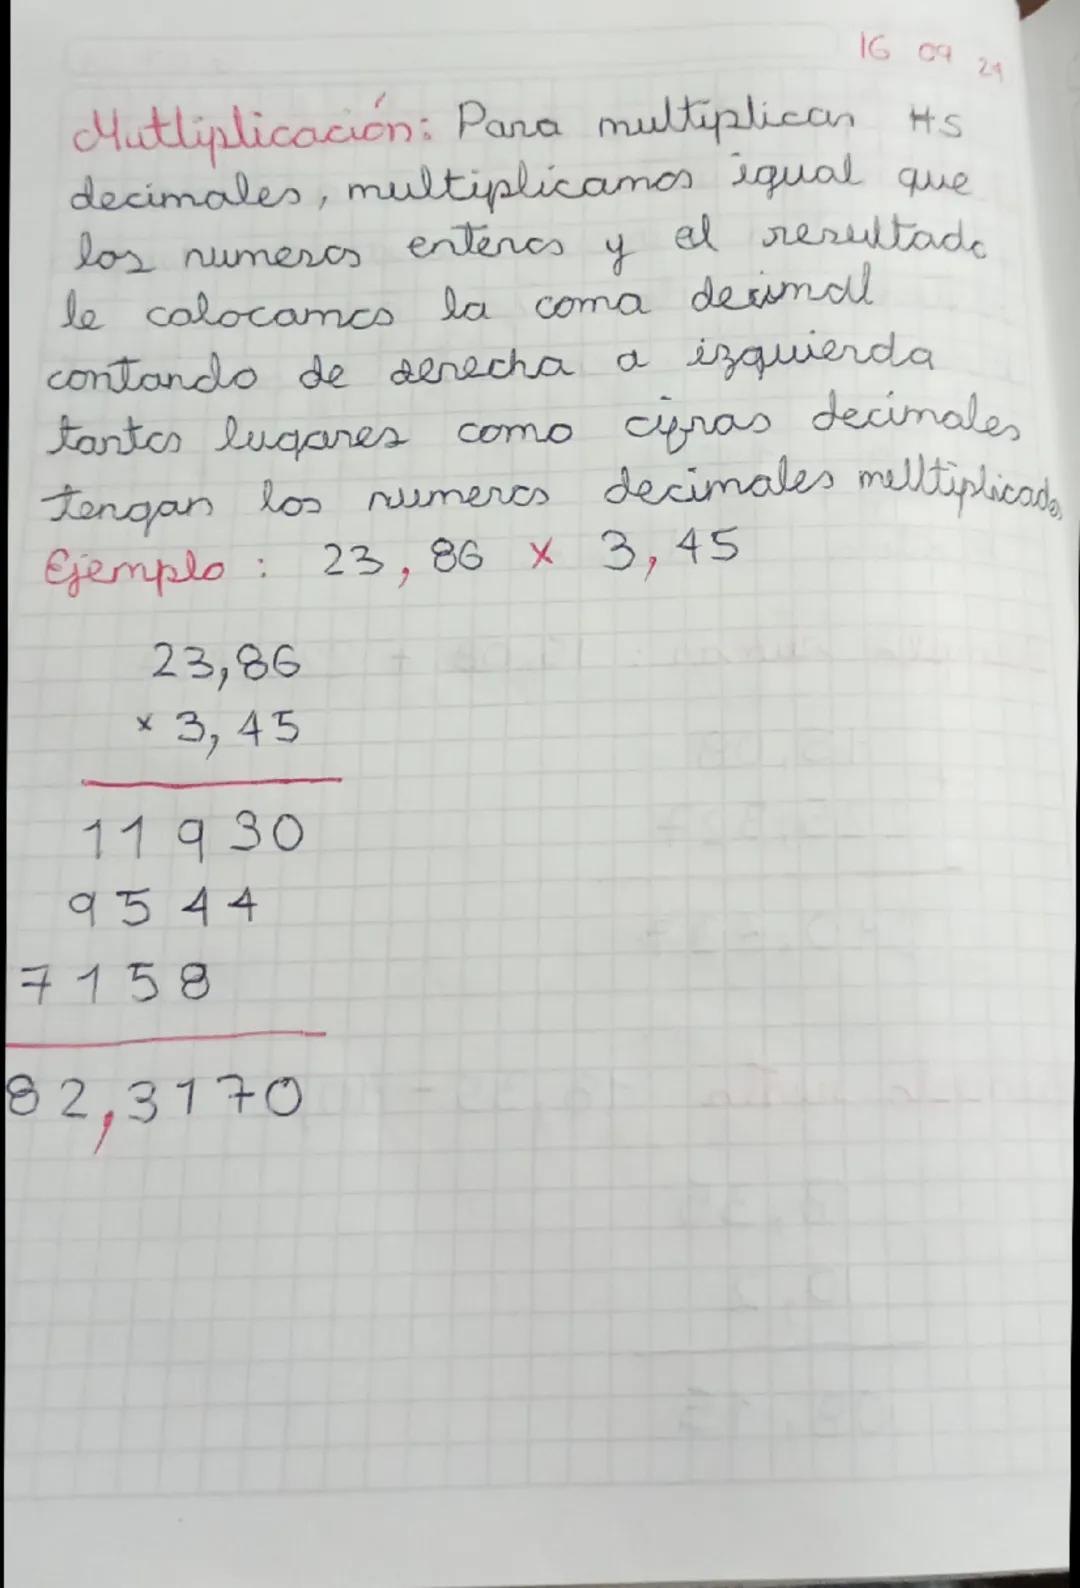 16 09 21
Mutliplicación: Para multiplicar #s
decimales, multiplicamos igual que
los numeros enteros y el resultado
le colocamos la coma decimal
contando de derecha a izquierda
tantos lugares como cifras decimales
tengan los numeros decimales melltiplicados
Ejemplo : 23,86 x 3,45
23,86
x 3,45
11930
9544
7158
82,3170